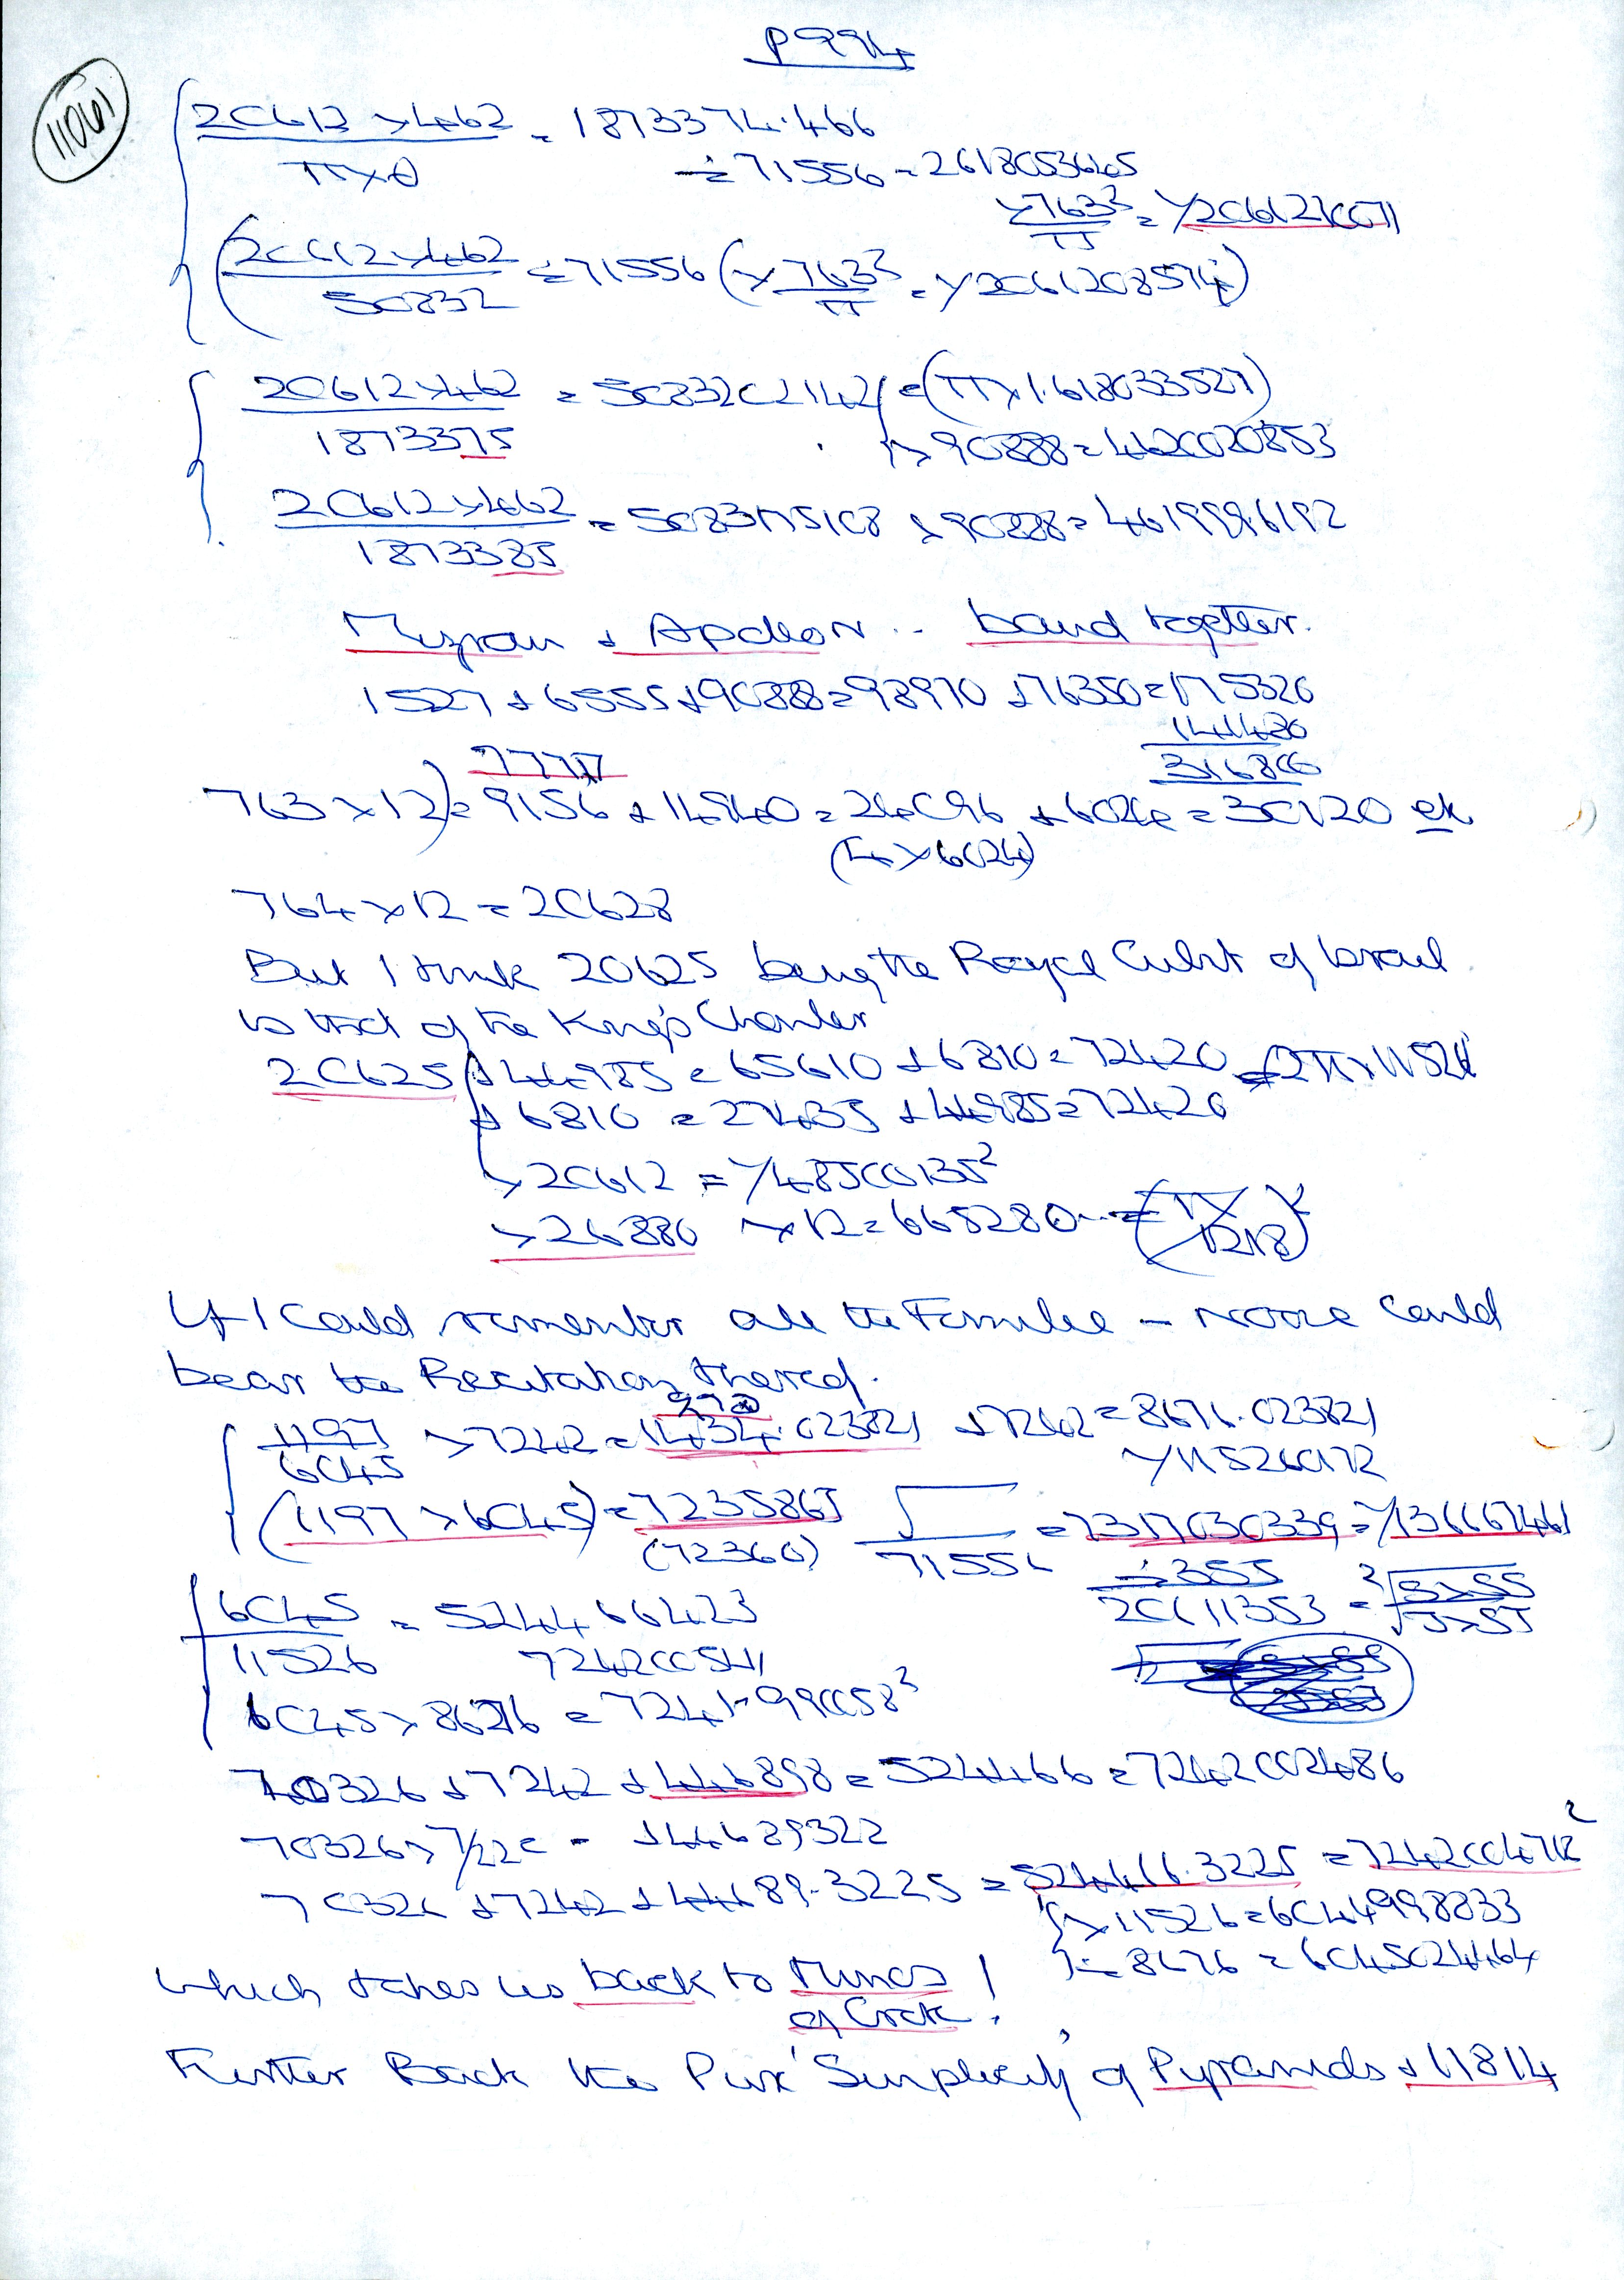 P994
11061
20612 × 462 / π × θ = 1873374.466
÷ 71556 = 2618053645
× 763² / π = 1/206121
(20612 × 462 / 50832 ÷ 71556 (× 763² / π = 1/2061208574)
20612 × 462 / 1873375 = 5083202142 = (π × 1.618033527)
× 90888 = 462020853
20612 × 462 / 1873385 = 5083175108 × 90888 = 4619996192
+ Apollon .. band together.
1527 + 6555 + 90888 = 98970 + 76350 = 175320
141480
316800
7777
763 × 12) = 9156 + 14940 = 24096 + 6024 = 30120
(4 × 6024)
764 × 12 = 20628
But I think 20625 being the Royal Cubit of Israel
is that of the King's Chamber
20625 + 44985 = 65610 + 6810 = 72420 = 2π × 11526
+ 6810 = 27435 + 44985 = 72420
× 20612 = 1/48500135²
× 26880 × 12 = 665280
If I could remember all the Formulae – noone could
bear the Recitation thereof.
1197 / 6045 × 7242 = 1434.023821 + 7242 = 8676.023821
1/11526012
(1197 × 6045) = 7235865 √ / 71556 = 7317030339 = 1/136667461
(72360)
÷ 355
2061 1353
6045 / 11526 = 524466423
7242005411
6045 × 8676 = 7241.990058²
70326 + 7242 + 446898 = 524466 = 7242002486
70326 × 7/22 = + 44689322
70326 + 7242 + 44689.3225 = 524466.3225 = 724200471²
× 11526 = 6044998833
÷ 8676 = 6045024464
Which takes us back to
Further Back the Pure 'Simplicity' of Pyramids + 11814